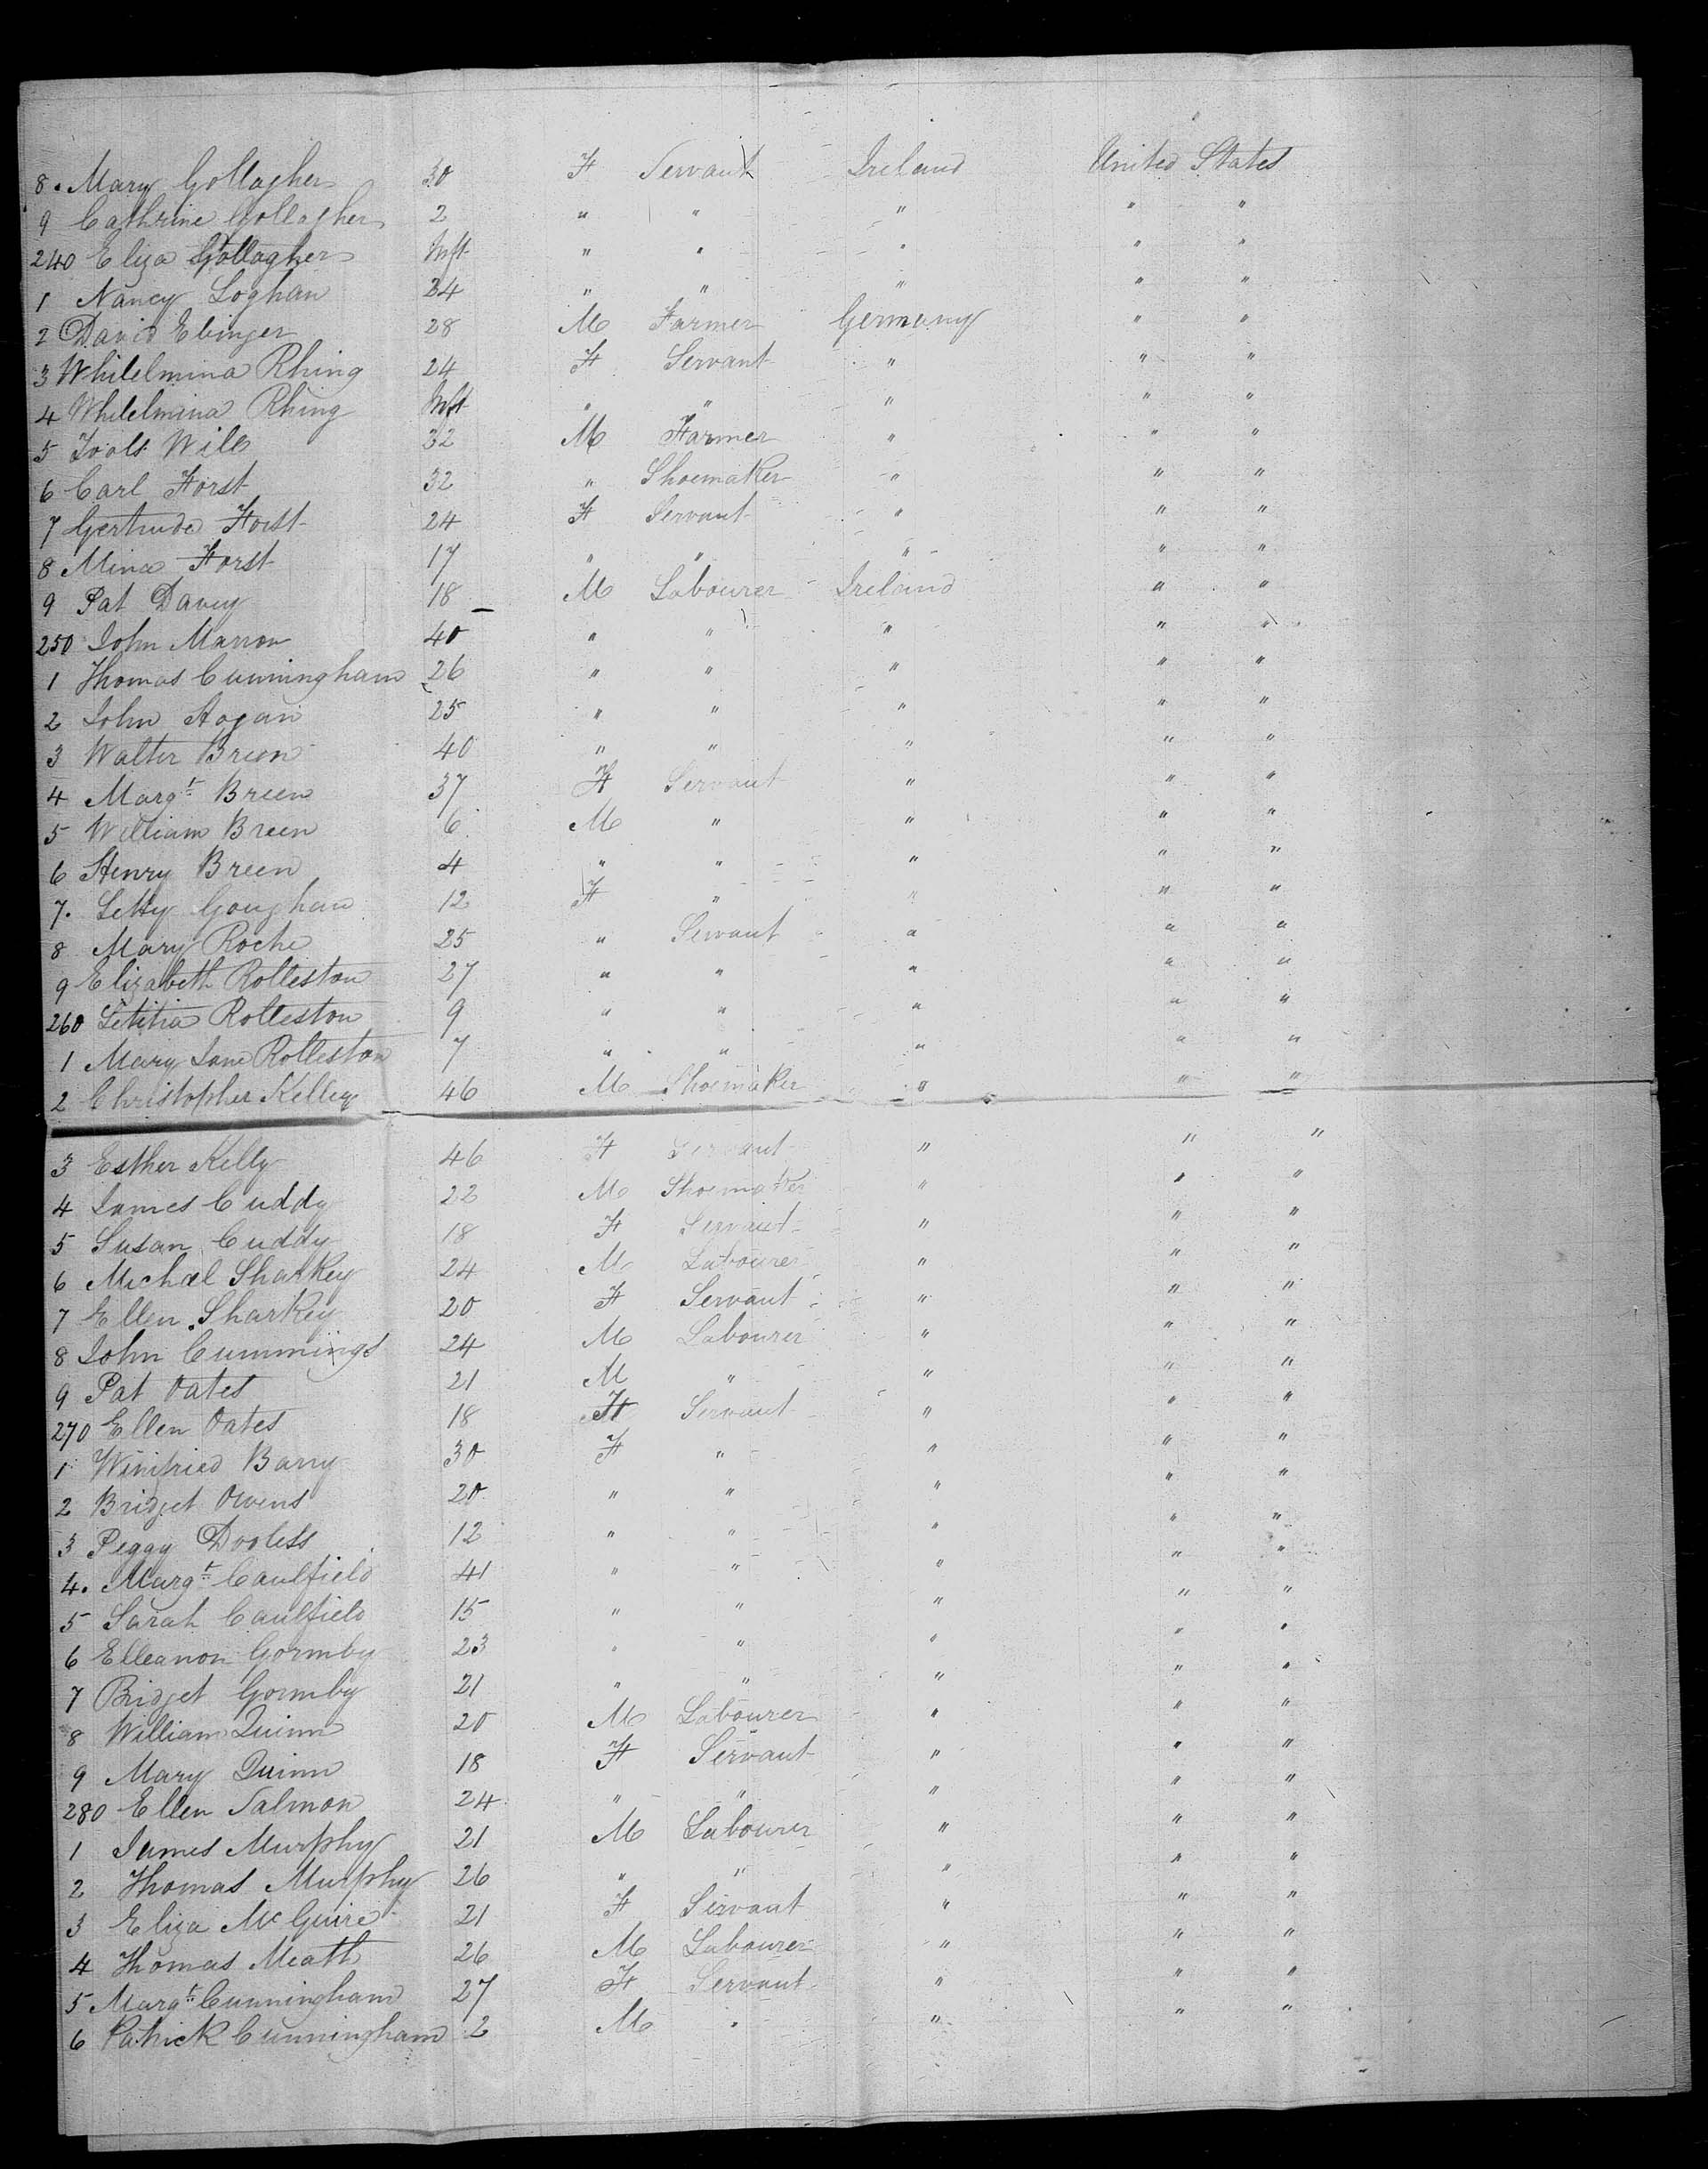 8. Mary Gollagher 30 F Servant Ireland United States
9 Cathrine Gollagher 2 " " " " "
240 Eliza Gollagher Inft " " " " "
1 Nancy Loghan 24 " " " " "
2 David Ebinger 28 M Farmer Germany " "
3 Whilelmina Rhing 24 F Servant " " "
4 Whilelmina Rhing Inft " " " " "
5 Wile 32 M Farmer " " "
6 Carl Forst 32 " Shoemaker " " "
7 Gertrude Forst 24 F Servant " " "
8 Mina Forst 17 " " " " "
9 Pat Davey 18 M Labourer Ireland " "
250 John Marron 40 " " " " "
1 Thomas Cunningham 26 " " " " "
2 John Hogan 25 " " " " "
3 Walter Breen 40 " " " " "
4 Margt Breen 37 F Servant " " "
5 William Breen 6 M " " " "
6 Henry Breen 4 " " " " "
7. Letty Goughan 12 F " " " "
8 Mary Roche 25 " Servant " " "
9 Elizabeth Rolleston 27 " " " " "
260 Letitia Rolleston 9 " " " " "
1 Mary Jane Rolleston 7 " " " " "
2 Christopher Kelley 46 M Shoemaker " " "
3 Esther Kelly 46 F Servant " " "
4 James Cuddy 22 M Shoemaker " " "
5 Susan Cuddy 18 F Servant " " "
6 Michael Sharkey 24 M Labourer " " "
7 Ellen Sharkey 20 F Servant " " "
8 John Cummings 24 M Labourer " " "
9 Pat Oates 21 M " " " "
270 Ellen Oates 18 F Servant " " "
1 Winifried Barry 30 F " " " "
2 Bridget Owens 20 " " " " "
3 Peggy Dooless 12 " " " " "
4. Margt Caulfield 41 " " " " "
5 Sarah Caulfield 15 " " " " "
6 Elleanor Gormby 23 " " " " "
7 Bridget Gormby 21 " " " " "
8 William Quinn 20 M Labourer " " "
9 Mary Quinn 18 F Servant " " "
280 Ellen Salmon 24 " " " " "
1 James Murphy 21 M Labourer " " "
2 Thomas Murphy 26 " " " " "
3 Eliza McGuire 21 F Servant " " "
4 Thomas Meath 26 M Labourer " " "
5 Margt Cunningham 27 F Servant " " "
6 Patrick Cunningham 2 M " " " "